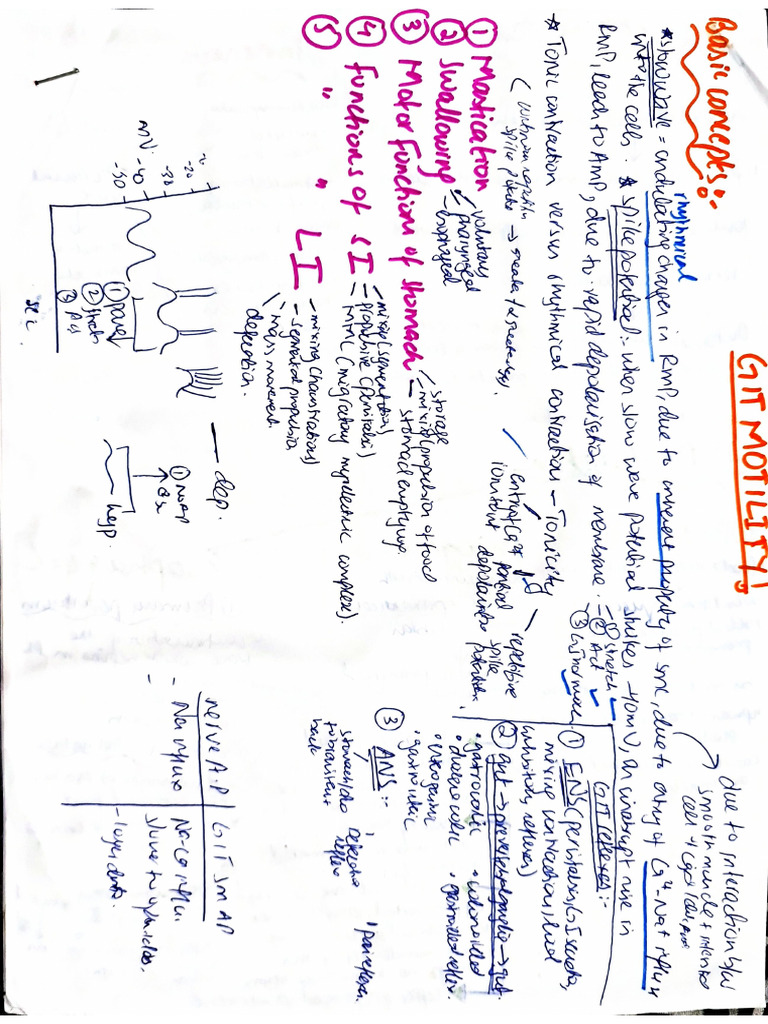 GIT MOTILITY
Basic concepts:-
* slow wave = undulating changes in RMP, due to inherent property of smc, due to entry of Ca2+, Na+ influx
rhythmical
into the cells. * spike potential:- when slow wave potential strikes -40mV, an abrupt rise in
RMP, leads to AMP, due to rapid depolarisation of membrane.
① stretch
② Ach
③ GI hormones
due to interaction b/w
smooth muscle & intersti
cell of cajal
* Tonic contraction versus rhythmical contractions - Tonicity
(without regular
spike potentials → greater/decreasing).
entry of Ca2+
ion into
partial
depolarisation
repetitive
spike
potentials
① Mastication
② Swallowing
voluntary
pharyngeal
esophageal
③ Motor function of stomach
storage
mixing/propulsion of food
stomach emptying
④ Functions of SI
- mixing (segmentation)
- propulsive (peristalsis)
MMC (migratory myoelectric complexes).
⑤ " " LI
- mixing (haustrations)
- segmental propulsion
mass movement
defecation.
GIT reflexes:-
① ENS (peristalsis, GI secretn,
mixing contractions, local
inhibitory reflexes)
② gut → prevertebral ganglia → gut.
• gastrocolic
• duodenocolic
• colonoileal
• gastroileal reflex.
• enterogastric
③ ANS:-
• gastric
stomach/duo
to brainstem
back
• Defecation
reflex
• pain reflex
mV
-20
-30
-40
-50
sec
① 
② stretch
③ PS
— dep.
① NorAd
hyp.
nerve AP | GIT SM AP
- Na influx | Na-Ca influx
slow to
- longer duratn.